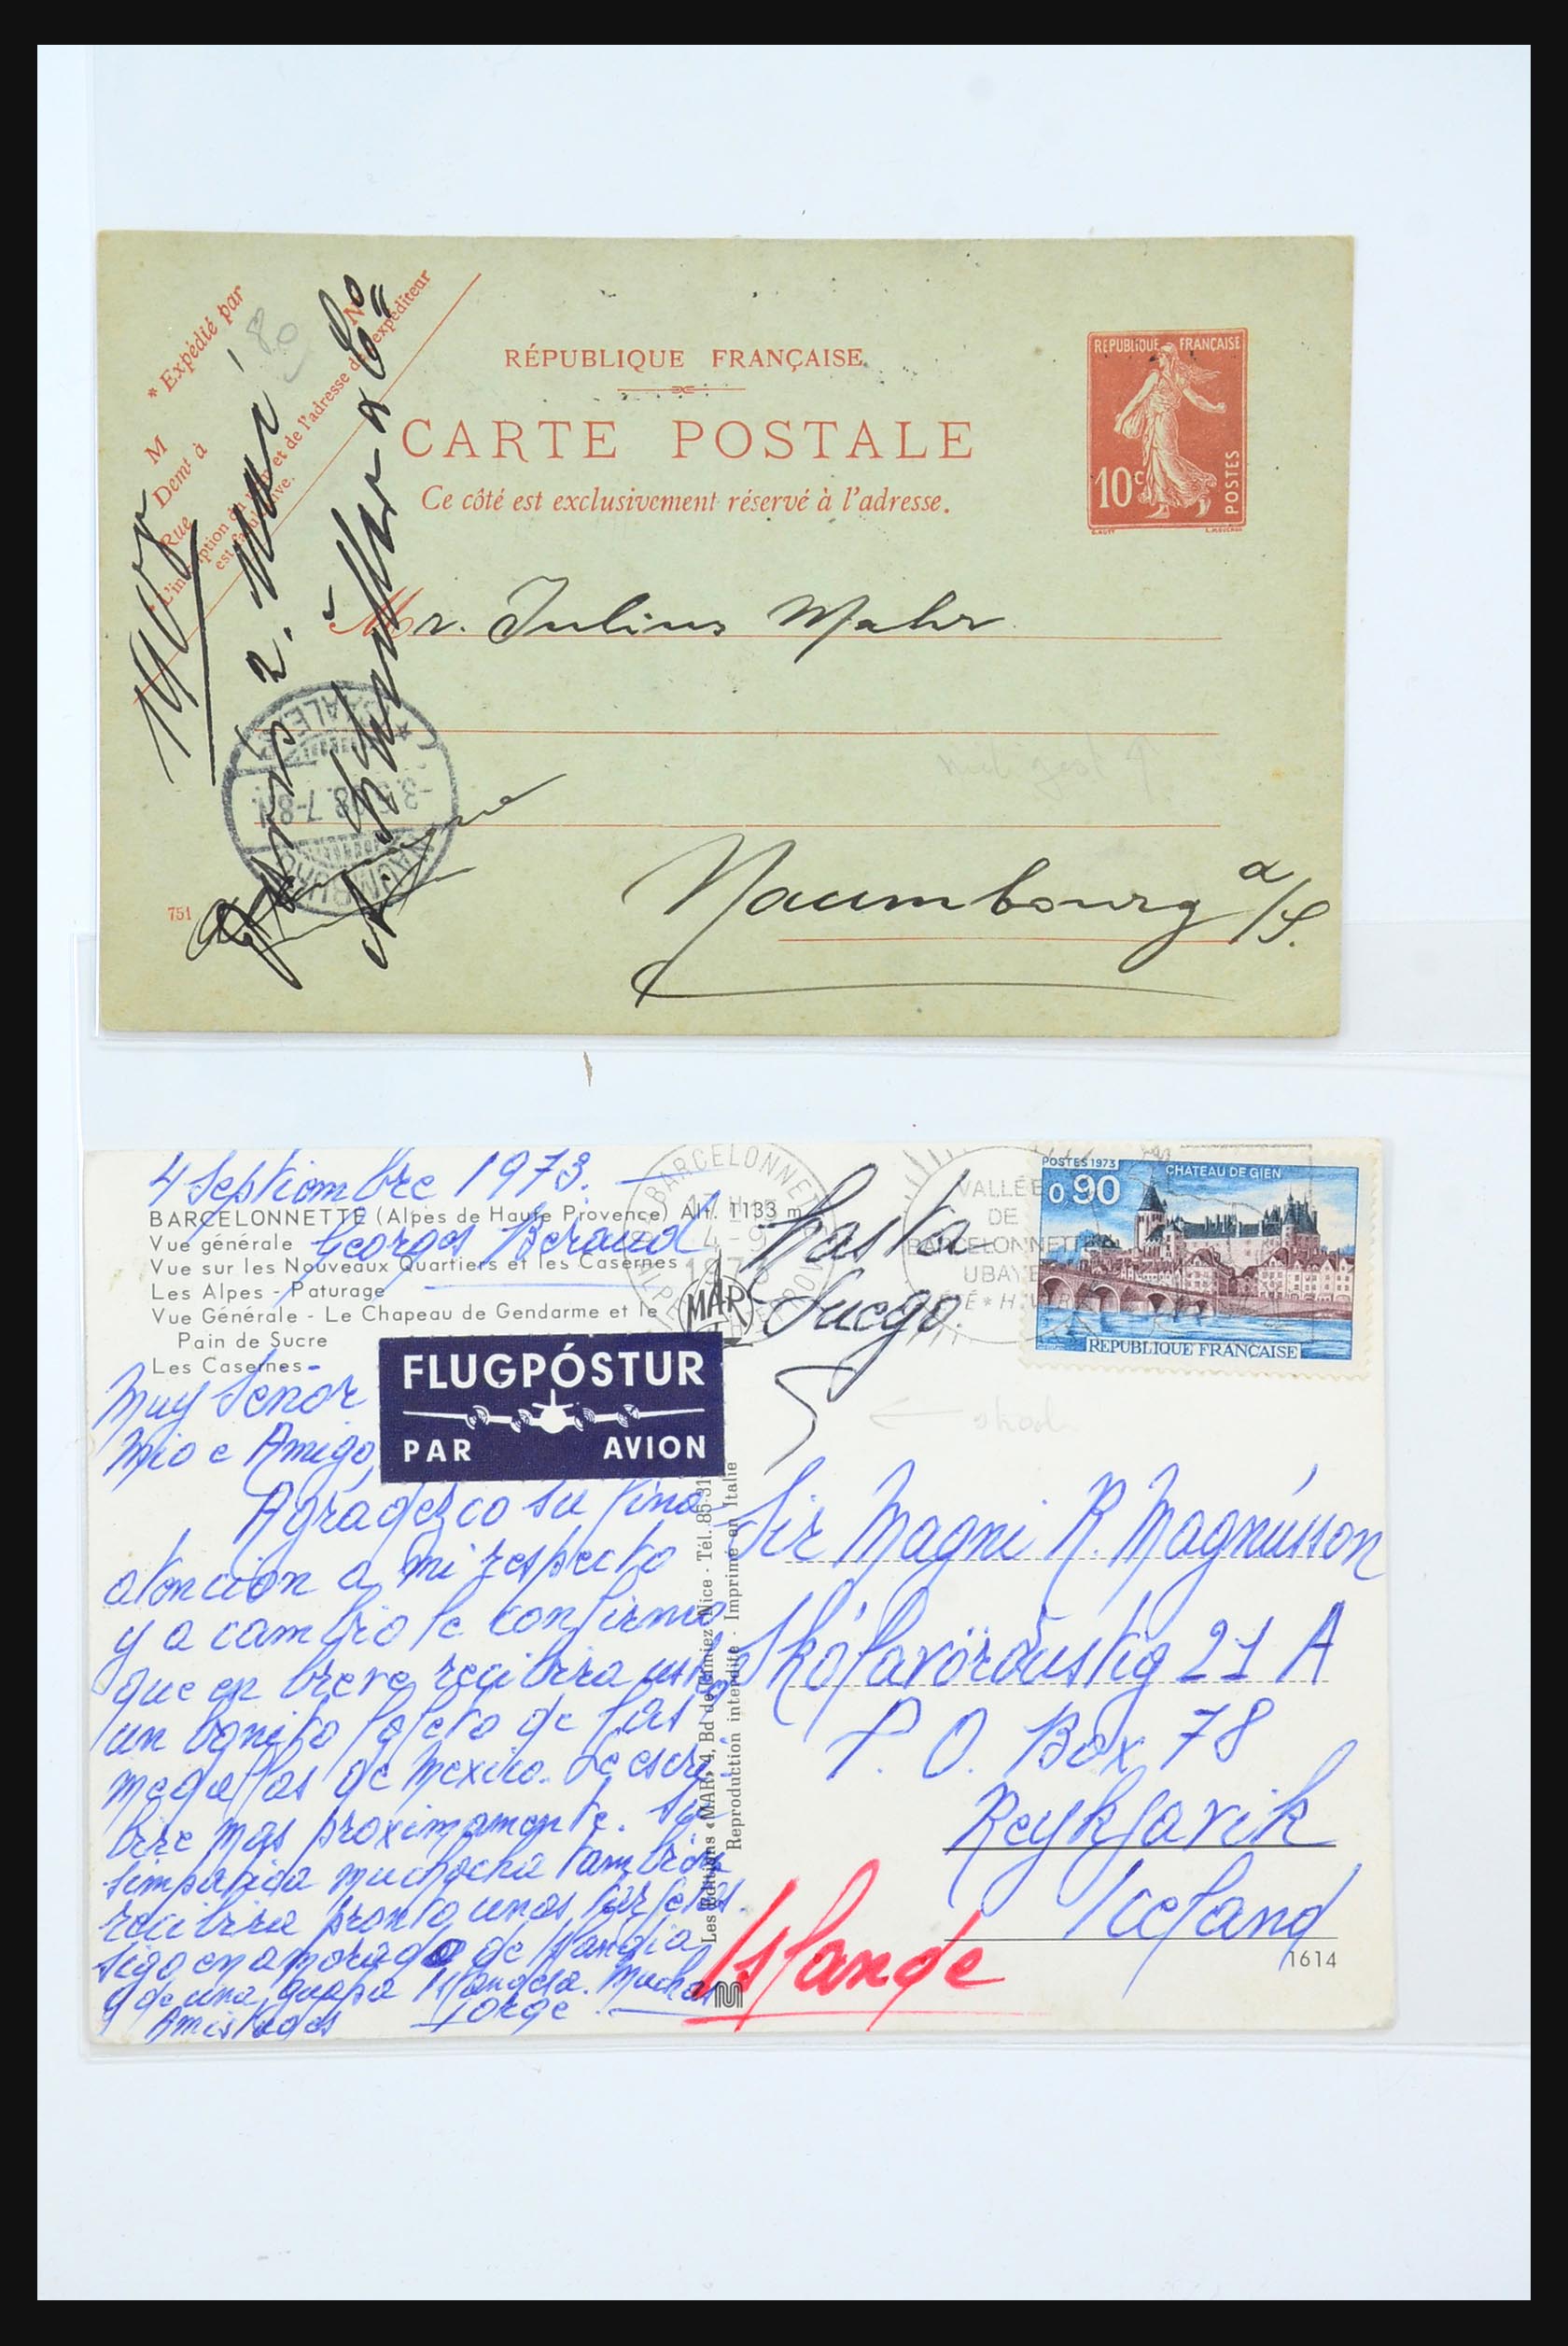 * Expédié par
M
Demt à
Rue
No
80
RÉPUBLIQUE FRANÇAISE
CARTE POSTALE
Ce côté est exclusivement réservé à l'adresse.
REPUBLIQUE FRANÇAISE
10c
POSTES
1908
2. Mai
Mr. Julius Mahr
Naumbourg a/S.
NAUMBURG
7-8
751
4 Septiembre 1973.
BARCELONNETTE (Alpes de Haute Provence) Alt. 1133 m
Vue générale
Georges Beraud
Vue sur les Nouveaux Quartiers et les Casernes
Les Alpes - Paturage
Vue Générale - Le Chapeau de Gendarme et le
Pain de Sucre
Les Casernes
MAR
BARCELONNETTE
4-9
1973
VALLÉE
DE
BARCELONNETTE
UBAYE
hasta
Luego.
POSTES 1973
CHATEAU DE GIEN
0,90
REPUBLIQUE FRANÇAISE
FLUGPÓSTUR
PAR AVION
Muy Senor
Mio e Amigo,
Agradezco su fina
atencion a mi respecto
y a cambio le confirmo
que en breve recibira usted
un bonito folleto de las
medallas de Mexico. Le escri-
bire mas proximamente. Su
simpatica muchacha tambien
recibira pronto unas tarjetas.
Sigo enamorado de Islandia
y de una guapa Islandesa. Muchas
Amistades Jorge
Les Editions «MAR» 4, Bd de Cimiez Nice - Tél. 85-31
Reproduction interdite - Imprimé en Italie
Sir Magni R. Magnússon
Skólavörðustig 21 A
P. O. Box 78
Reykjavik
Iceland
Islande
1614